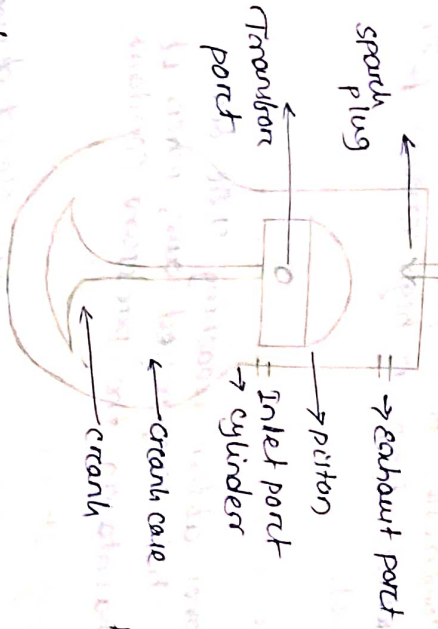 spark
plug
Transfer
port
→ Exhaust port
→ piston
Inlet port
→ cylinder
crank case
crank